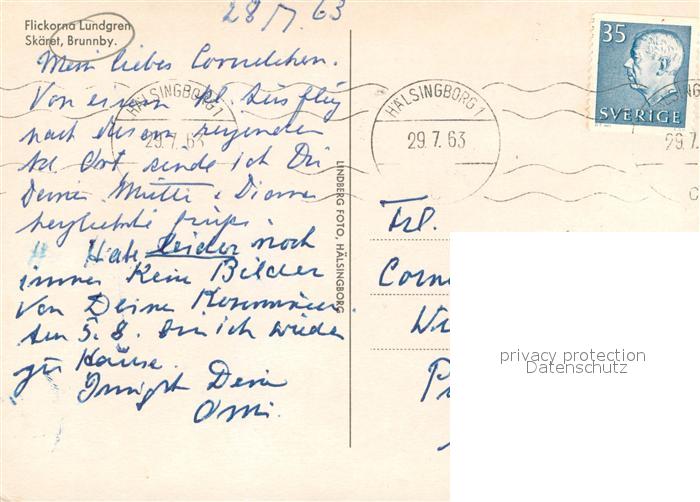 28/7 63
Flickorna Lundgren
Skäret, Brunnby.
Mein liebes Cornelchen.
Von einem kl. Ausflug
nach diesem
Ort sende ich Dir
Deiner Mutti u
Grüße.
Habe leider noch
immer Kein Bilder
Von Deiner
den 5.8. bin ich wieder
zu Hause.
Innigst Deine
Omi.
LINDBERG FOTO, HÄLSINGBORG
HÄLSINGBORG 1
29.7.63
HÄLSINGBORG 1
29.7.63
35
SVERIGE
NG
29.7
Frl.
Corne
privacy protection
Datenschutz